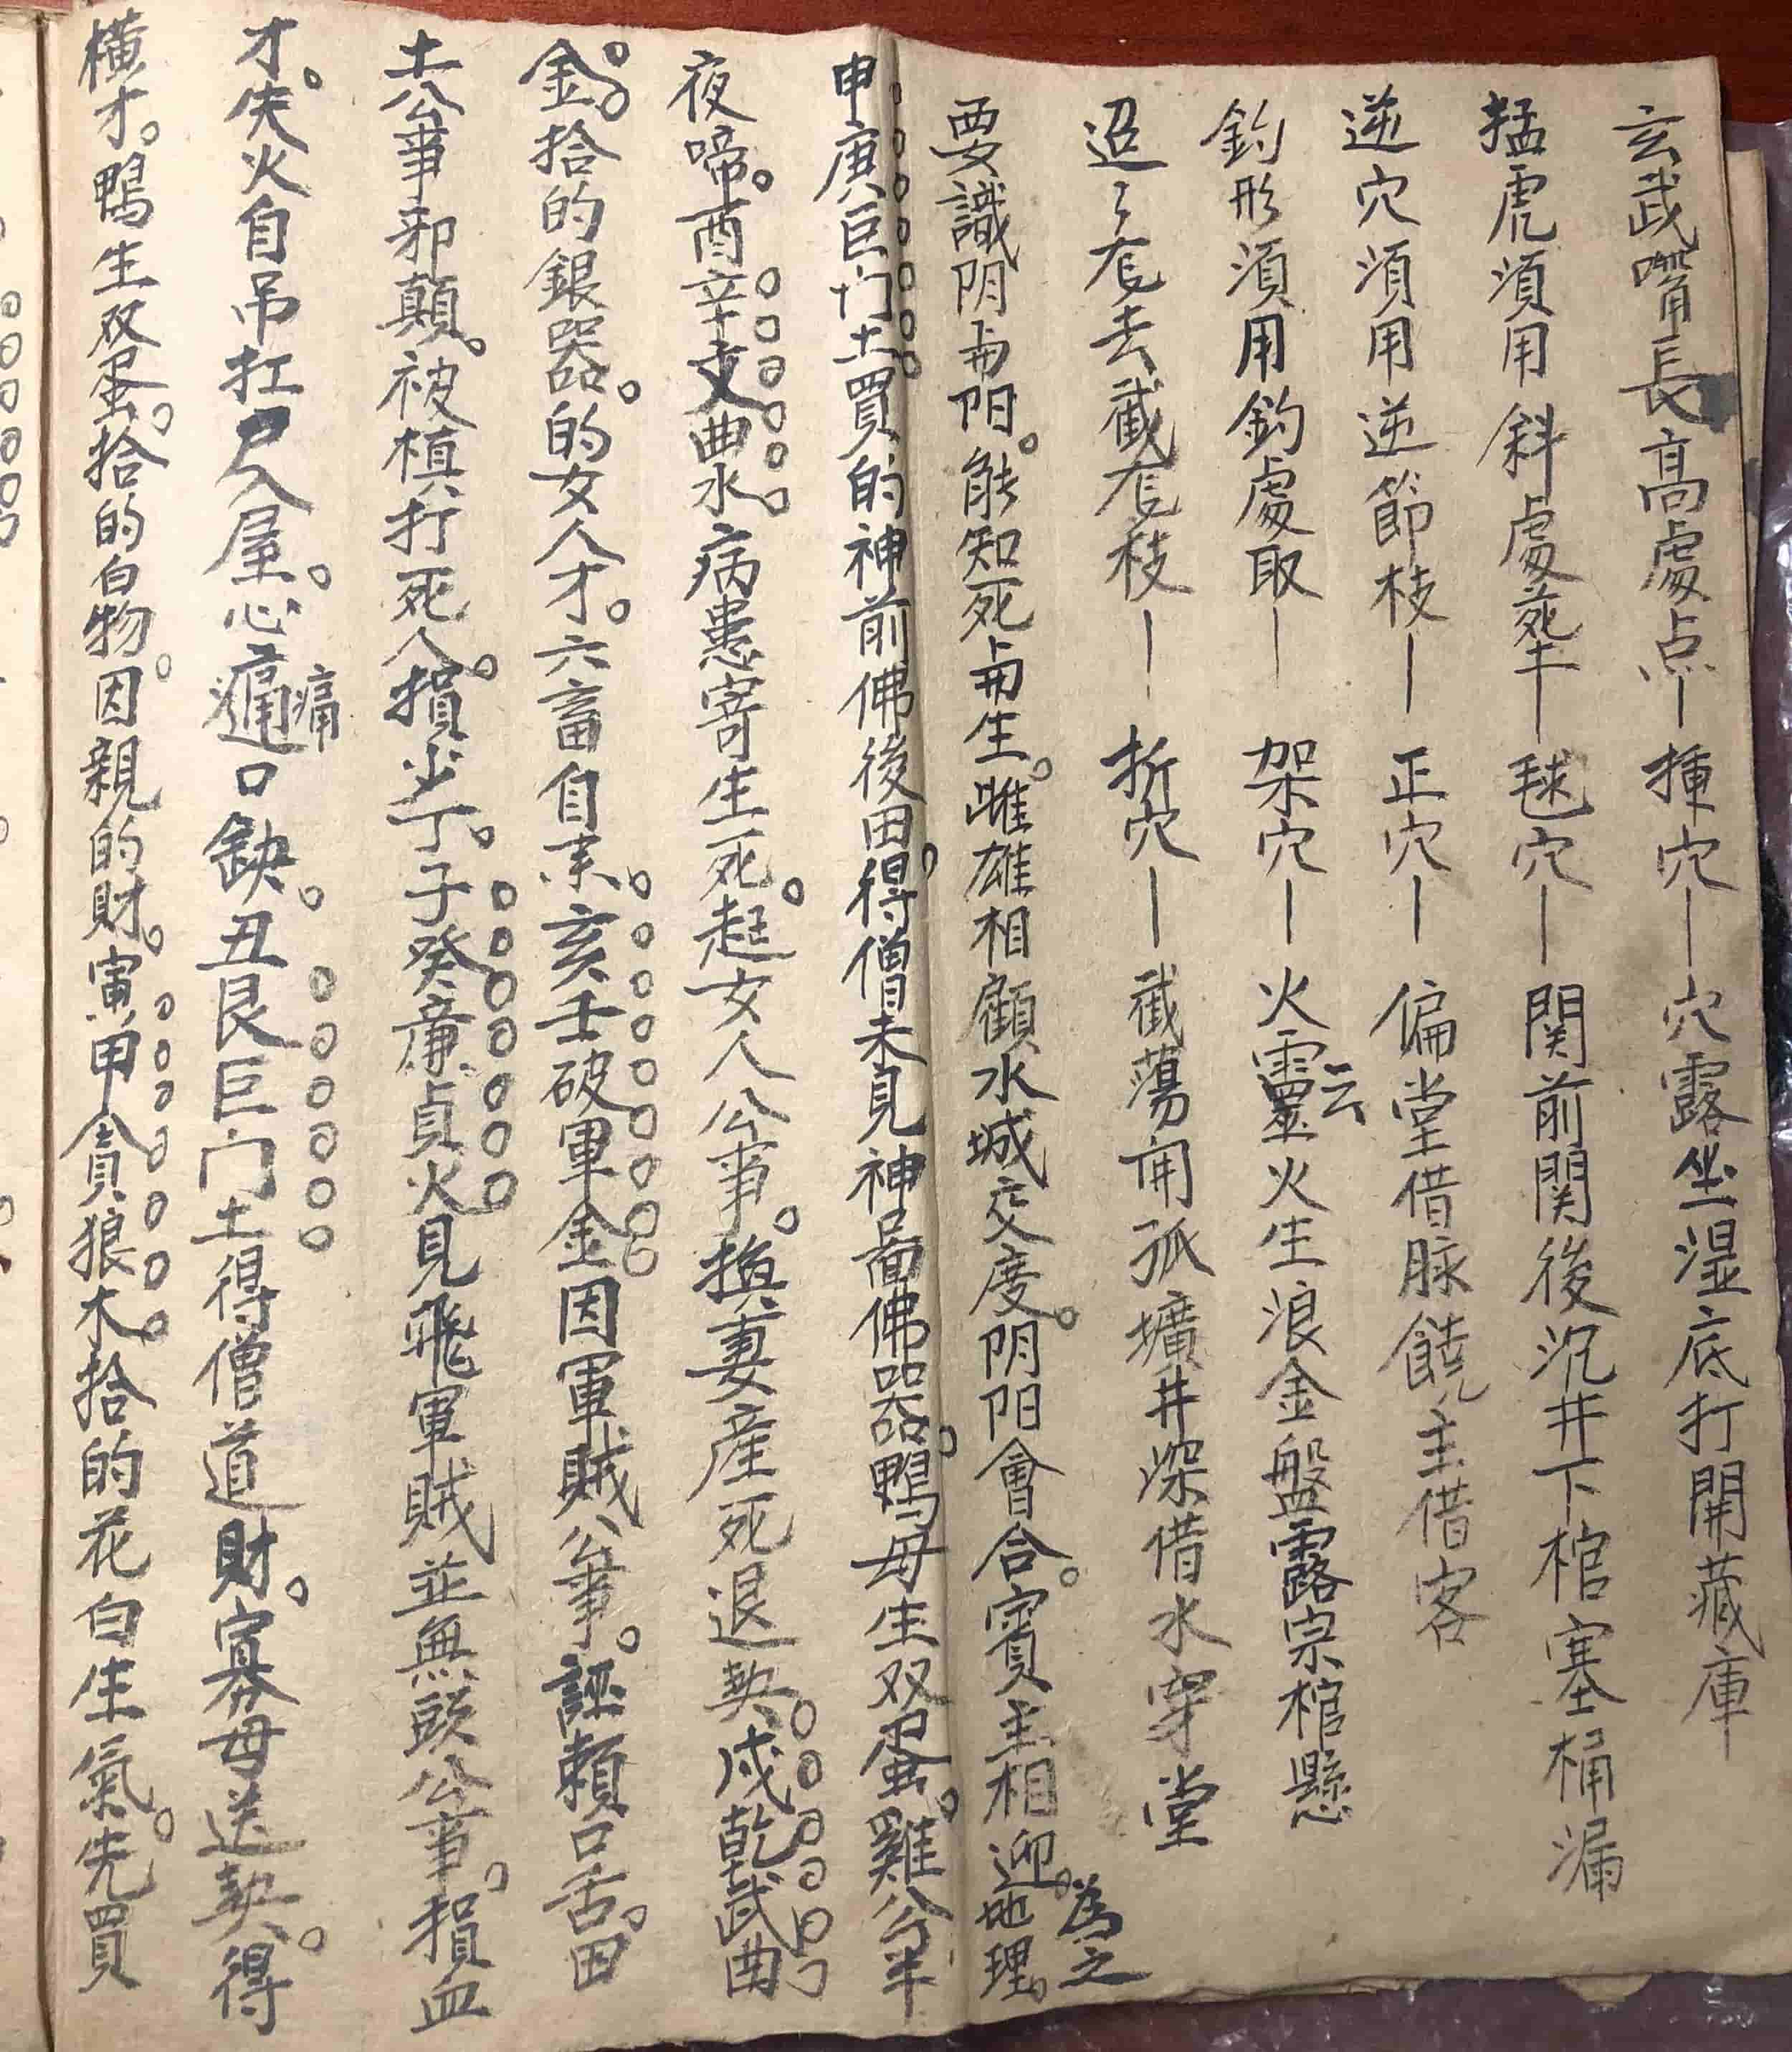 玄武嘴長高處点｜揷穴｜穴露坐湿底打開藏庫
猛虎須用斜處㘸｜毬穴｜関前関後沉井下棺塞桶漏
逆穴須用逆節枝｜正穴｜偏堂借脉饒主借客
釣形須用釣處取｜架穴｜火靈云火生浪金盤露宗棺懸
迢々去截枝｜折穴｜截蕩孤壙井深借水穿堂
要識阴与阳。能知死与生。雌雄相顧水城交度。阴阳會合。賓主相迎。為之地理。
申庚巨门土買的神前佛後田。得僧未見神啚佛器。鴨母生双蛋。雞公半
夜啼。酉辛文曲水。病患寄生死。起女人公事。損妻産死退契。戌乾武曲
金。拾的銀器。的女人才。六畜自来。亥壬破軍金因軍賊公事。誣賴口舌。田
土公事邪顛。被槙打死人。損少丁。子癸廉貞火見飛軍賊並無頭公事。損血
才。失火自吊扛尸入屋。心痛口缺。丑艮巨门土得僧道財。寡母送契。得
橫才。鴨生双蛋。拾的白物。因親的財。寅甲貪狼木。拾的花白生氣。先買